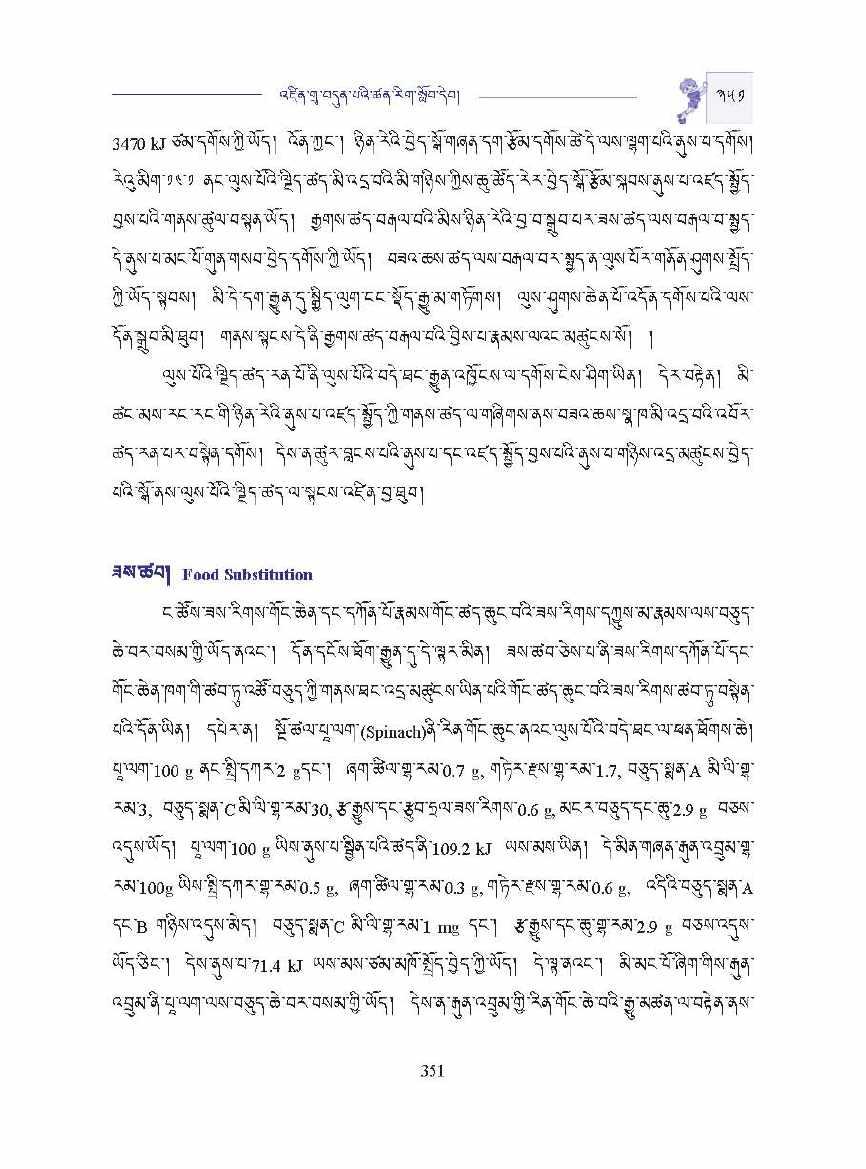 འཛིན་གྲྭ་བདུན་པའི་ཚན་རིག་སློབ་དེབ།
༣༥༡
3470 kJ ཙམ་དགོས་ཀྱི་ཡོད། འོན་ཀྱང་། ཉིན་རེའི་བྱེད་སྒོ་གཞན་དག་རྩོམ་དགོས་ཚེ་དེ་ལས་ལྷག་པའི་ནུས་པ་དགོས།
རེའུ་མིག་༡༤་༡ ནང་ལུས་པོའི་ལྗིད་ཚད་མི་འདྲ་བའི་མི་གཉིས་ཀྱིས་ཆུ་ཚོད་རེར་བྱེད་སྒོ་རྩོམ་སྐབས་ནུས་པ་འཛད་སྤྱོད་
བྱས་པའི་གནས་ཚུལ་བསྟན་ཡོད། རྒྱགས་ཚད་བརྒལ་བའི་མིས་ཉིན་རེའི་བྱ་བ་སྒྲུབ་པར་ཟས་ཚད་ལས་བརྒལ་བ་སྤྱད་
དེ་ནུས་པ་མང་པོ་གུན་གསབ་བྱེད་དགོས་ཀྱི་ཡོད། བཟའ་ཆས་ཚད་ལས་བརྒལ་བར་སྤྱད་ན་ལུས་པོར་གནོན་ཤུགས་སྤྲོད་
ཀྱི་ཡོད་སྟབས། མི་དེ་དག་རྒྱུན་དུ་སྒྱིད་ལུག་ངང་སྡོད་རྒྱུ་མ་གཏོགས། ལུས་ཤུགས་ཆེན་པོ་འདོན་དགོས་པའི་ལས་
དོན་སྒྲུབ་མི་ཐུབ། གནས་སྟངས་དེ་ནི་རྒྱགས་ཚད་བརྒལ་བའི་བྱིས་པ་རྣམས་ལའང་མཚུངས་སོ། །
ལུས་པོའི་ལྗིད་ཚད་རན་པོ་ནི་ལུས་པོའི་བདེ་ཐང་རྒྱུན་འཁྱོངས་ལ་དགོས་ངེས་ཤིག་ཡིན། དེར་བརྟེན། མི་
ཚང་མས་རང་རང་གི་ཉིན་རེའི་ནུས་པ་འཛད་སྤྱོད་ཀྱི་གནས་ཚད་ལ་གཞིགས་ནས་བཟའ་ཆས་སྣ་ཁ་མི་འདྲ་བའི་འབོར་
ཚད་རན་པར་བསྟེན་དགོས། དེས་ན་ཚུར་བླངས་པའི་ནུས་པ་དང་འཛད་སྤྱོད་བྱས་པའི་ནུས་པ་གཉིས་འདྲ་མཚུངས་བྱེད་
པའི་སྒོ་ནས་ལུས་པོའི་ལྗིད་ཚད་ལ་སྟངས་འཛིན་བྱ་ཐུབ།
ཟས་ཚབ། Food Substitution
ང་ཚོས་ཟས་རིགས་གོང་ཆེན་དང་དཀོན་པོ་རྣམས་གོང་ཚད་ཆུང་བའི་ཟས་རིགས་དཀྱུས་མ་རྣམས་ལས་བཅུད་
ཆེ་བར་བསམ་གྱི་ཡོད་ནའང་། དོན་དངོས་ཐོག་རྒྱུན་དུ་དེ་ལྟར་མིན། ཟས་ཚབ་ཅེས་པ་ནི་ཟས་རིགས་དཀོན་པོ་དང་
གོང་ཆེན་ཁག་གི་ཚབ་ཏུ་འཚོ་བཅུད་ཀྱི་གནས་ཐང་འདྲ་མཚུངས་ཡིན་པའི་གོང་ཚད་ཆུང་བའི་ཟས་རིགས་ཚབ་ཏུ་བསྟེན་
པའི་དོན་ཡིན། དཔེར་ན། སྔོ་ཚལ་པཱ་ལག་(Spinach)ནི་རིན་གོང་ཆུང་ནའང་ལུས་པོའི་བདེ་ཐང་ལ་ཕན་ཐོགས་ཆེ།
པཱ་ལག་100 g ནང་སྤྲི་དཀར་2 gདང་། ཞག་ཚིལ་གྲྭ་རམ་0.7 g, གཏེར་རྫས་གྲྭ་རམ་1.7, བཅུད་སྨན་A མི་ལི་གྲྭ་
རམ་3, བཅུད་སྨན་C མི་ལི་གྲྭ་རམ་30, རྩ་རྒྱུས་དང་རྩུབ་ཧྲལ་ཟས་རིགས་0.6 g, མངར་བཅུད་དང་ཆུ་2.9 g བཅས་
འདུས་ཡོད། པཱ་ལག་100 g ཡིས་ནུས་པ་སྦྱིན་པའི་ཚད་ནི་109.2 kJ ཡས་མས་ཡིན། དེ་མིན་གཞན་རྒུན་འབྲུམ་གྲྭ་
རམ་100g ཡིས་སྤྲི་དཀར་གྲྭ་རམ་0.5 g, ཞག་ཚིལ་གྲྭ་རམ་0.3 g, གཏེར་རྫས་གྲྭ་རམ་0.6 g, འདིའི་བཅུད་སྨན་A
དང་B གཉིས་འདུས་མེད། བཅུད་སྨན་C མི་ལི་གྲྭ་རམ་1 mg དང་། རྩ་རྒྱུས་དང་ཆུ་གྲྭ་རམ་2.9 g བཅས་འདུས་
ཡོད་ཅིང་། དེས་ནུས་པ་71.4 kJ ཡས་མས་ཙམ་མཁོ་སྤྲོད་བྱེད་ཀྱི་ཡོད། དེ་ལྟ་ནའང་། མི་མང་པོ་ཞིག་གིས་རྒུན་
འབྲུམ་ནི་པཱ་ལག་ལས་བཅུད་ཆེ་བར་བསམ་གྱི་ཡོད། དེས་ན་རྒུན་འབྲུམ་གྱི་རིན་གོང་ཆེ་བའི་རྒྱུ་མཚན་ལ་བརྟེན་ནས་
351